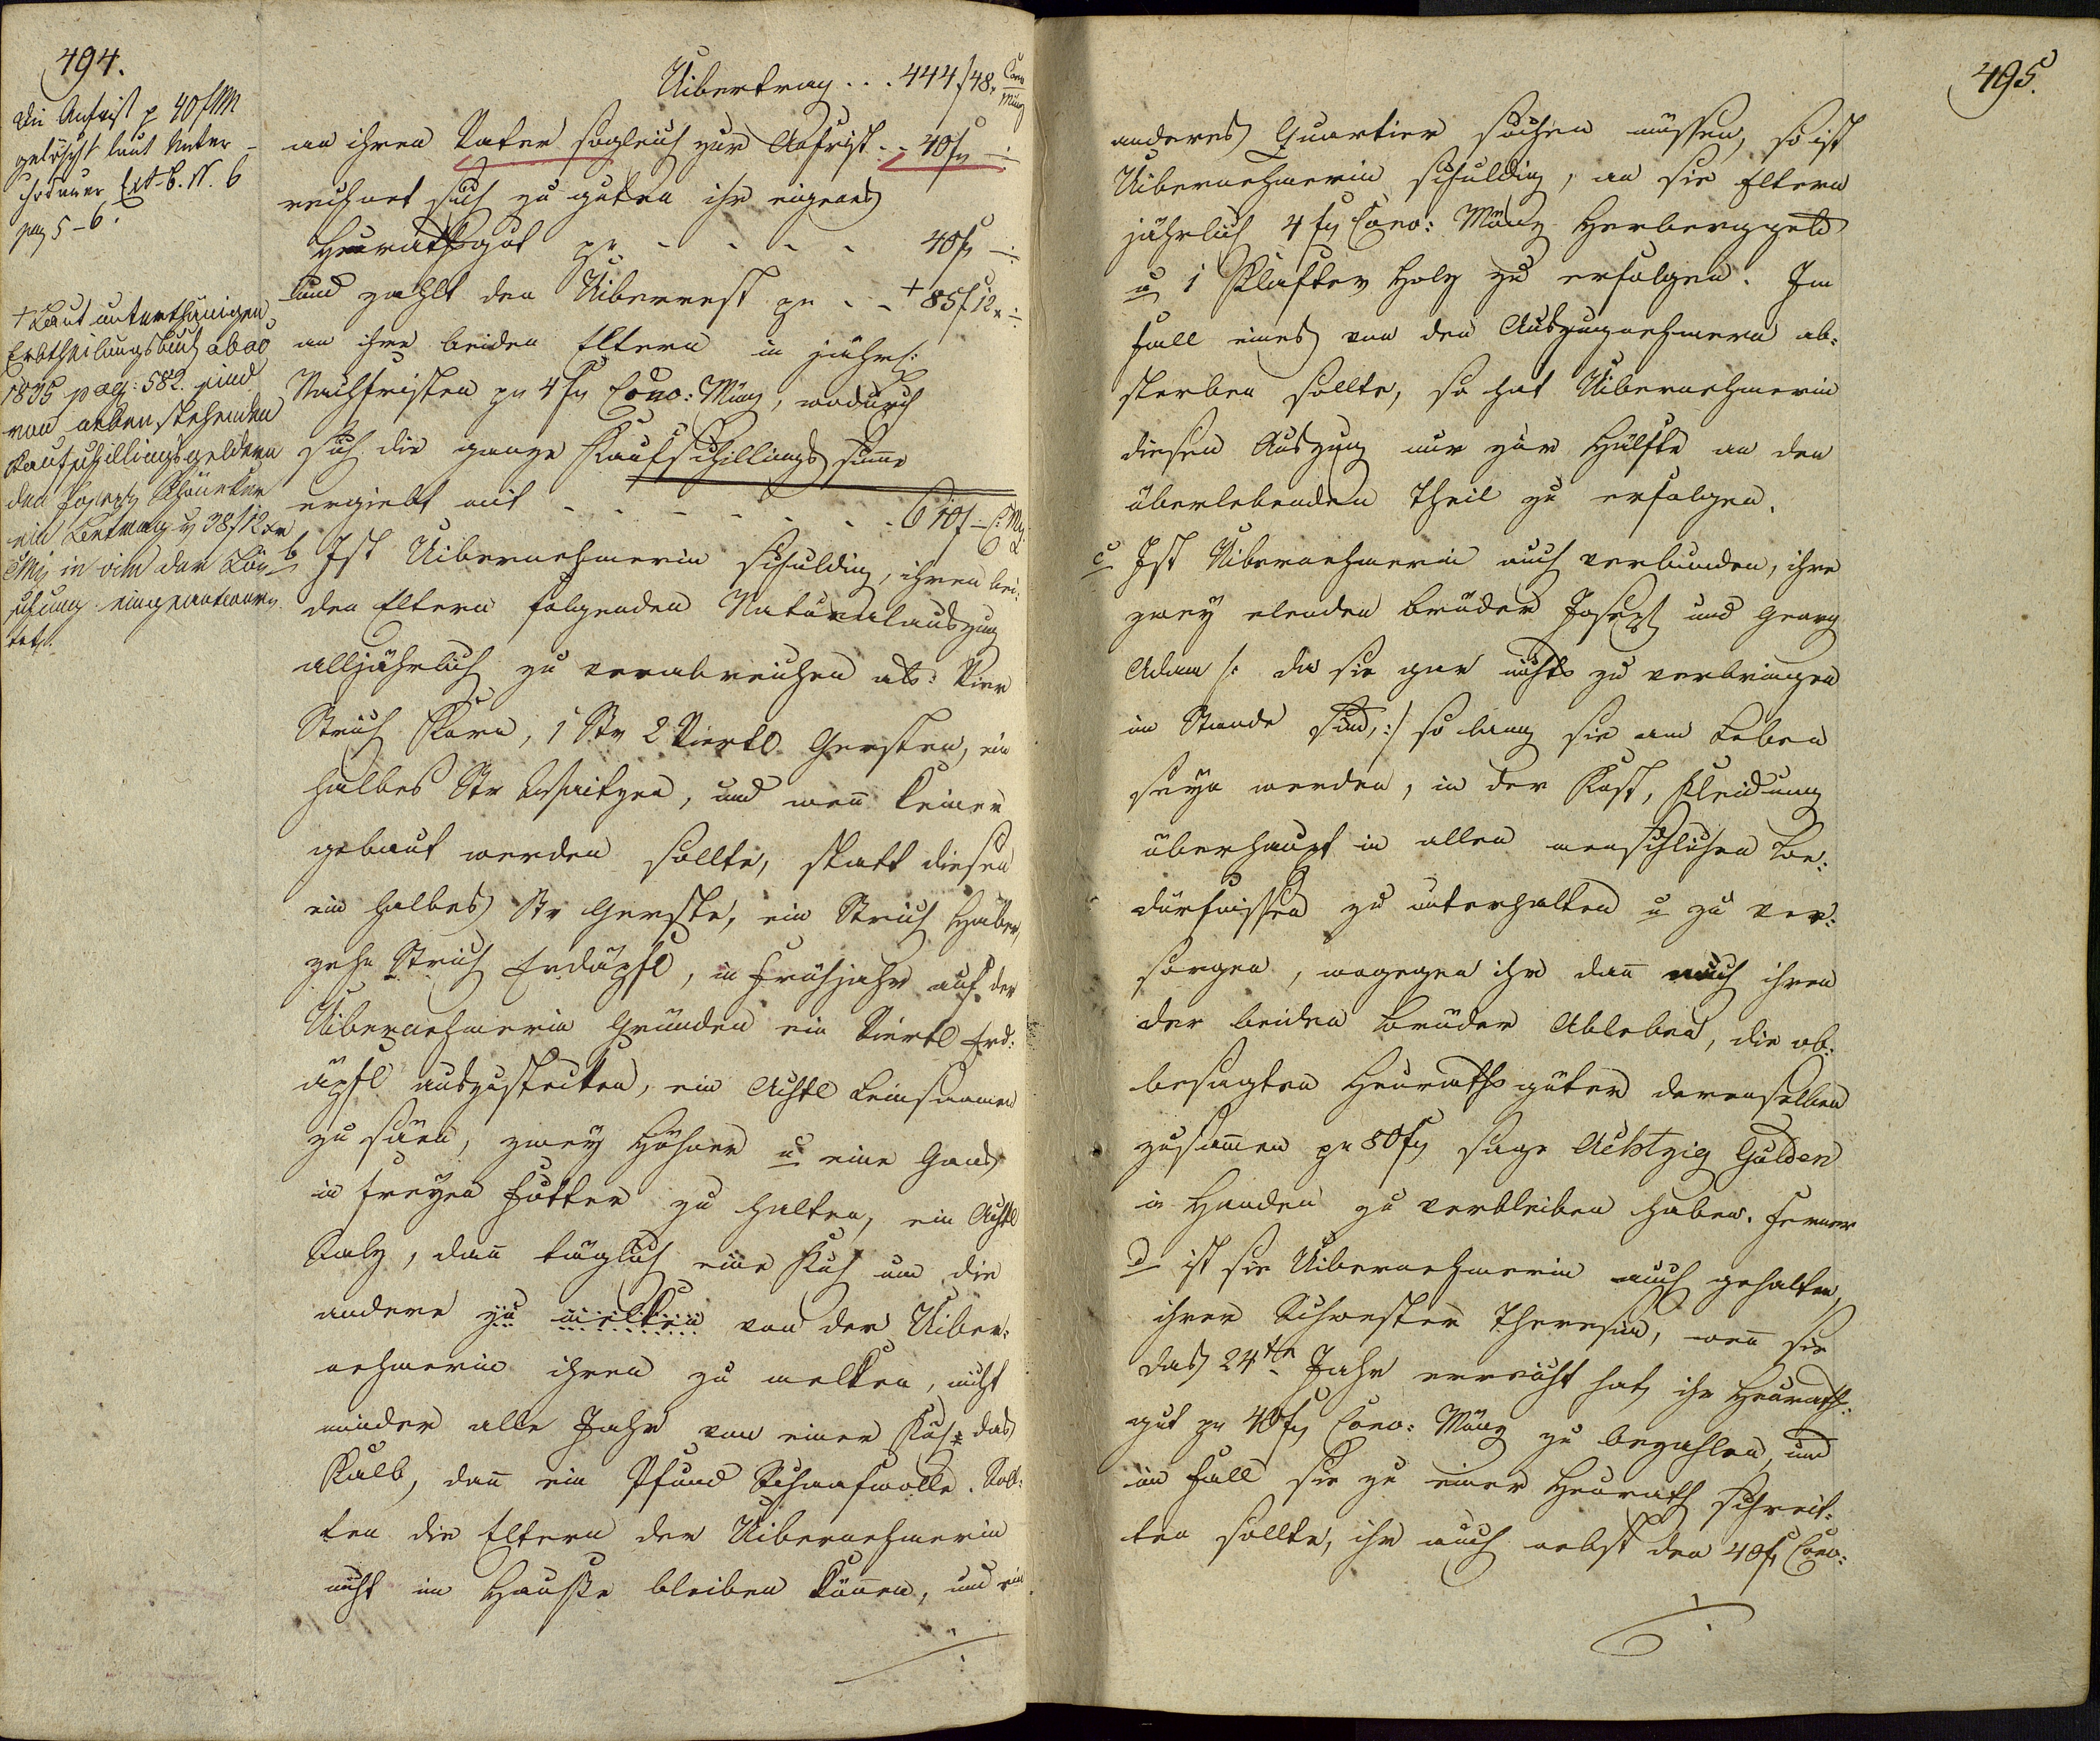 494.
Die Anfrist p 40 f CMM
gelöscht laut Unter-
chodauer Ext. B. N. 6
pag 5-6.
+ Laut unterthänigen
Erbtheilungsbuch ab ao
1835 pag: 582. sind
von nebenstehenden
Kaufschillingsgeldern
den Joseph
ein Betrag p 38 f 12 xr
CMz in vim der Lö-
schung eingeantwor-
tet.
Uibertrag . . . 444 f 48 x Conv Münz
an ihren Vater sogleich zur Anfrist . - 40 f -
rechnet sich zu guten ihr eigenes
Heurathsgut pr - - - - 40 f -
und zahlt den Uiberrest pr - - + 85 f 12 x
an ihre beiden Eltern in jährl:
Nachfristen pr 4 f Conv: Münz, wodurch
sich die ganze Kaufschillings summe
ergiebt mit - - - - - - - 610 f - C: Mz
b Ist Uibernehmerin schuldig, ihren bei:
den Eltern folgenden Naturalauszug
alljährlich zu verabreichen als: Vier
Strich Korn, 1 Str 2 Viertl Gersten, ein
halbes Str Waitzen, und wen̄ keiner
gebaut werden sollte, statt diesen
ein halbes Str Gerste, ein Strich Haber,
zehn Strich Erdäpfl, in Frühjahr auf der
Uibernehmerin Gründen ein Viertl Erd:
äpfl auszustecken, ein Achtl Leinsaamen
zu säen, zwey Höhner u eine Gans
in freyen Futter zu halten, ein Achtl
Salz, dan̄ täglich eine Kuh um die
andere zu melken von der Uiber:
nehmerin ihren zu melken, nicht
minder alle Jahr von einer Kuh das
Kalb, dan̄ ein Pfund Schaafwolle. Soll:
ten die Eltern der Uibernehmerin
nicht im Hauße bleiben kön̄en, und ein
495.
anderes Quartier suchen müssen, so ist
Uibernehmerin schuldig, an sie Eltern
jährlich 4 f Conv: Münz Herberggeld
u 1 Klafter Holz zu erfolgen. Im
Fall eines von den Auszugnehmern ab:
sterben sollte, so hat Uibernehmerin
diesen Auszug nur zur Hälfte an den
überlebenden Theil zu erfolgen.
c Ist Uibernehmerin auch verbunden, ihre
zwey elenden Brüder Joseph und Georg
Adam /: da sie gar nichts zu verbringen
im Stande sind, :/ so lang sie am Leben
seyn werden, in der Kost, Kleidung
überhaupt in allen menschlichen Be:
dürfnissen zu unterhalten u zu ver:
sorgen, wogegen ihr dan̄ nach ihren
der beiden Brüder Ableben, die ob:
besagten Heurathsgüter derenselben
zusam̄en pr 80 f sage Achtzig Gulden
in Handen zu verbleiben haben. Ferner
d ist sie Uibernehmerin auch gehalten,
ihrer Schwester Theresia, wen̄ sie
das 24te Jahr erreicht hat, ihr Heuraths:
gut pr 40 f Conv: Münz zu bezahlen, und
im Fall sie zu einer Heurath schreit:
ten sollte, ihr auch nebst den 40 f Conv: